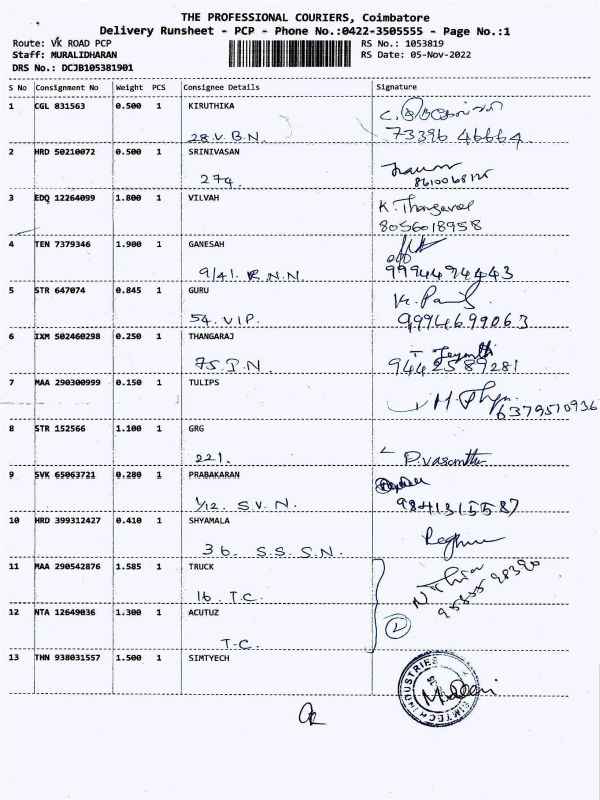 THE PROFESSIONAL COURIERS, Coimbatore
Delivery Runsheet - PCP - Phone No.:0422-3505555 - Page No.:1
Route: VK ROAD PCP
RS No.: 1053819
Staff: MURALIDHARAN
RS Date: 05-Nov-2022
DRS No.: DCJB105381901
S No Consignment No Weight PCS Consignee Details Signature
1 CGL 831563 0.500 1 KIRUTHIKA
28 V.B.N. 73396 46664
2 HRD 50210072 0.500 1 SRINIVASAN
274.
3 EDQ 12264099 1.800 1 VILVAH K. Thangavel
8056018958
4 TEN 7379346 1.900 1 GANESAH
9/41. R.N.N. 9994494443
5 STR 647074 0.845 1 GURU
54. V.I.P. 9994699063
6 IXM 502460298 0.250 1 THANGARAJ
75. P.N. 9442589281
7 MAA 290300999 0.150 1 TULIPS
6379510936
8 STR 152566 1.100 1 GRG
221. P.Vasantha
9 SVK 65063721 0.280 1 PRABAKARAN
1/12. S.V.N.
10 HRD 399312427 0.410 1 SHYAMALA
36. S.S.S.N.
11 MAA 290542876 1.585 1 TRUCK
16. T.C.
12 NTA 12649036 1.300 1 ACUTUZ
T.C. 2
13 THN 938031557 1.500 1 SIMTYECH
SIMTECH INDUSTRIES